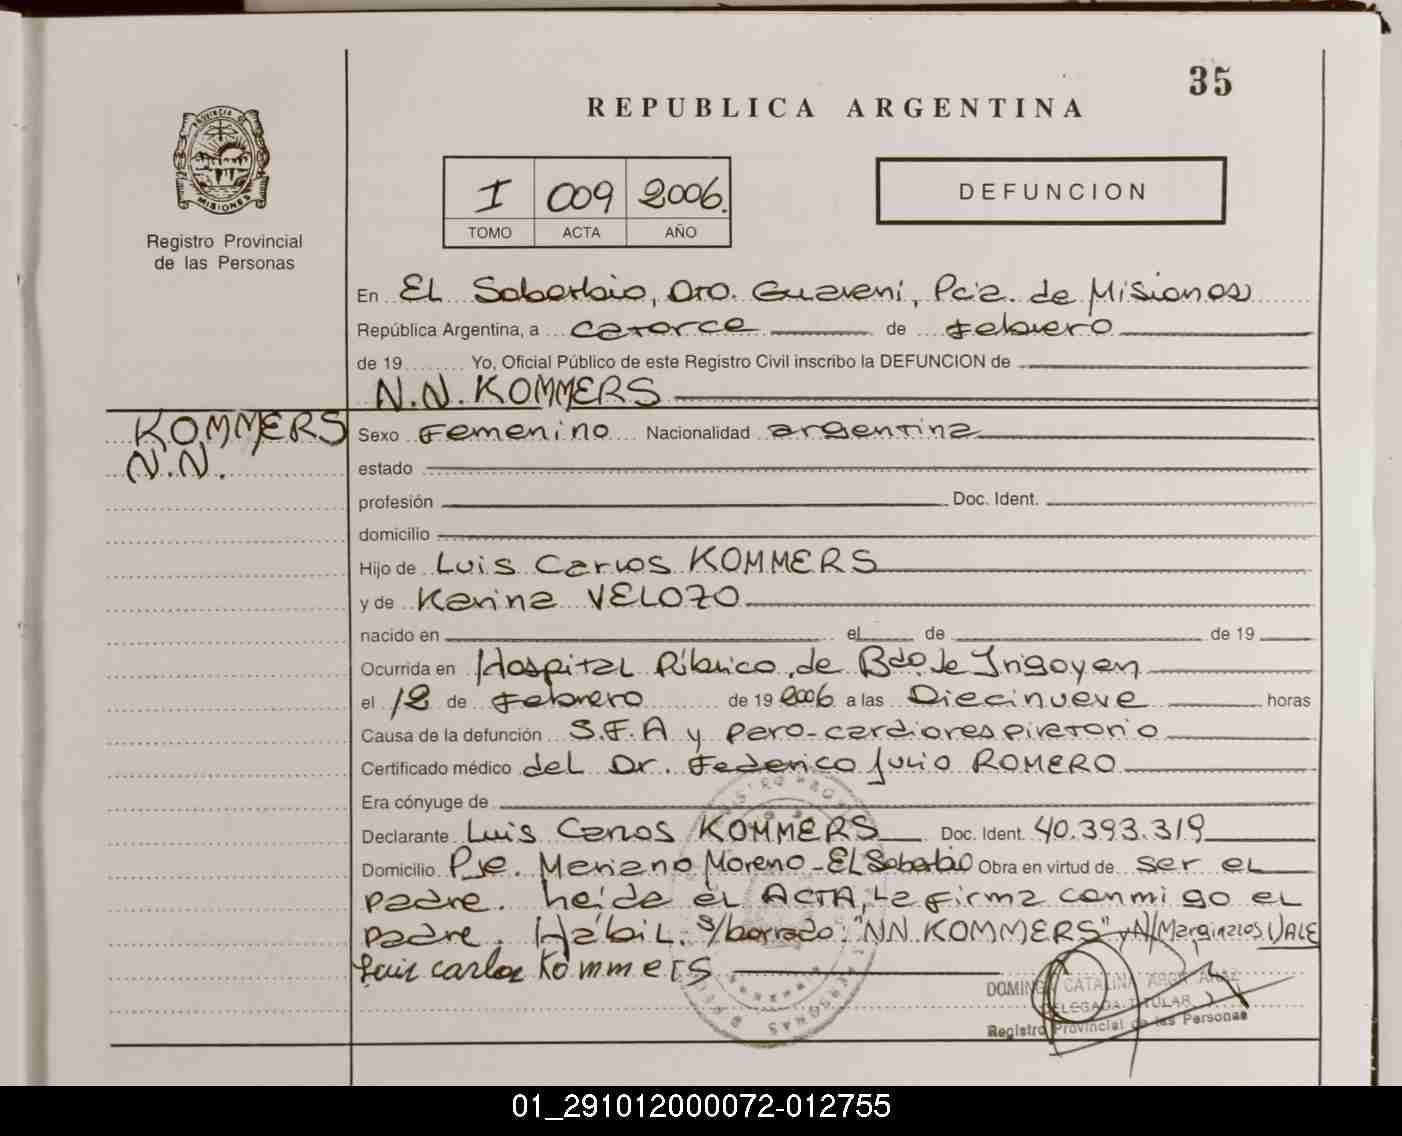 35
REPUBLICA ARGENTINA
PROVINCIA DE
MISIONES
Registro Provincial
de las Personas
I 009 2006.
TOMO ACTA AÑO
DEFUNCION
En EL Soberbio, Dto. Guarani, Pcia. de Misiones
República Argentina, a catorce de Febrero
de 19 Yo, Oficial Público de este Registro Civil inscribo la DEFUNCION de
N.N. KOMMERS
KOMMERS
N.N.
Sexo Femenino Nacionalidad argentina
estado
profesión Doc. Ident.
domicilio
Hijo de Luis Carlos KOMMERS
y de Karina VELOZO
nacido en el de de 19
Ocurrida en Hospital Público, de Bdo. de Irigoyen
el 12 de Febrero de 19 2006 a las Diecinueve horas
Causa de la defunción S.F.A y paro-cardiorespiratorio
Certificado médico del Dr. Federico Julio ROMERO
Era cónyuge de
Declarante Luis Carlos KOMMERS Doc. Ident. 40.393.319
Domicilio Pje. Mariano Moreno-EL Soberbio Obra en virtud de ser el
padre. heida el ACTA, La firma conmigo el
padre. Hábil. s/borrado: "NN KOMMERS" y N/Marginales VALE
Luis carlos KommeRS
DOMINGA CATALINA
DELEGADA TITULAR
Registro Provincial de las Personas
01_291012000072-012755